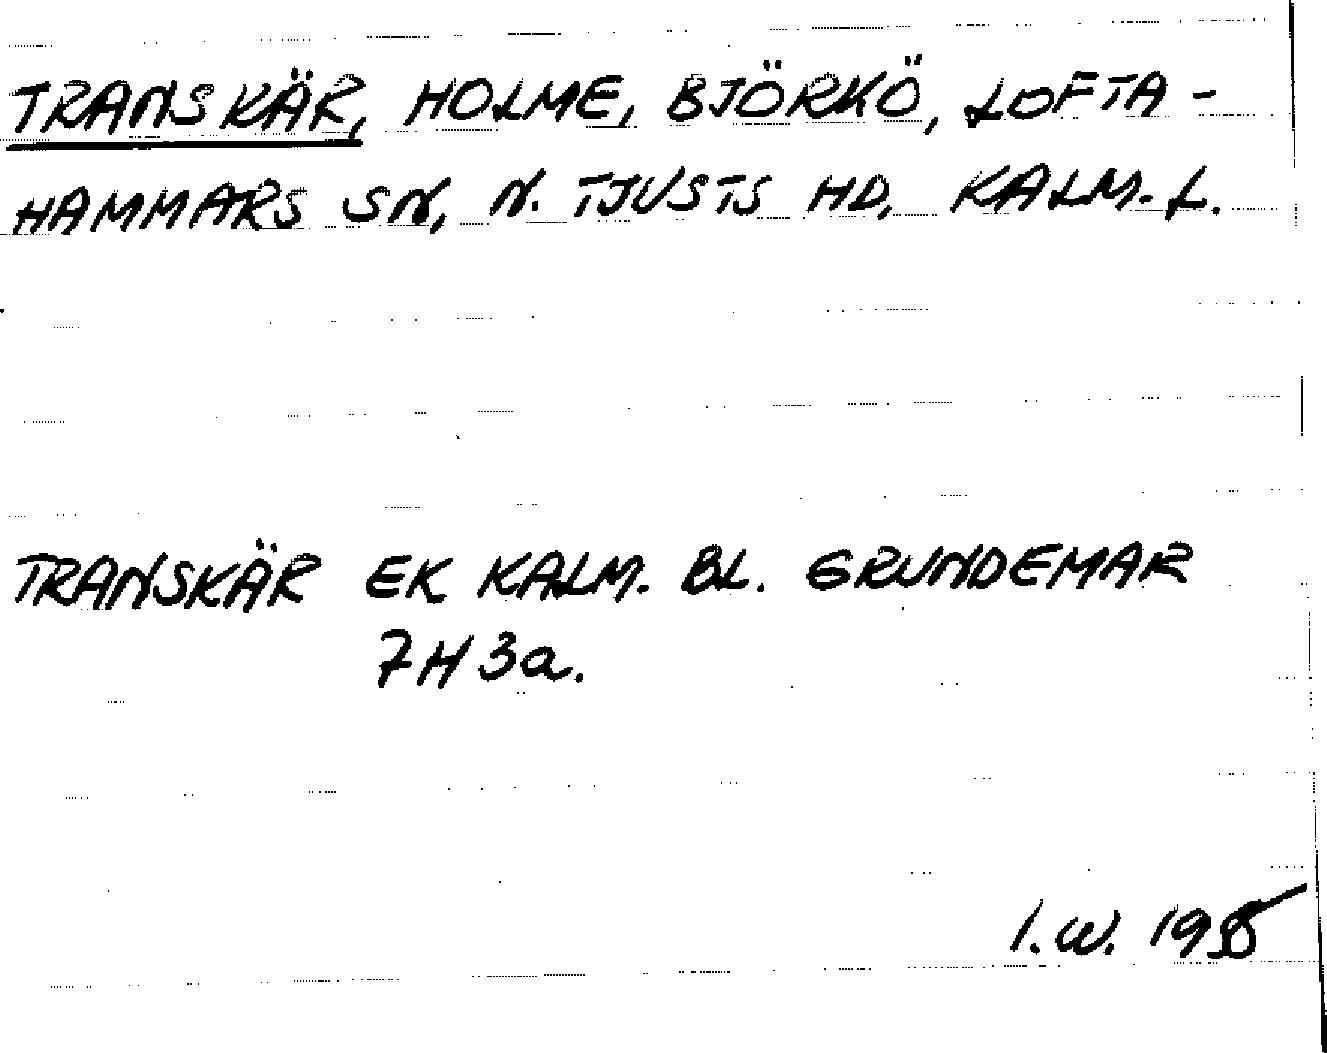 TRANSKÄR, HOLME, BJÖRKÖ, LOFTA-
HAMMARS SN, N. TJUSTS HD, KALM. L.
TRANSKÄR EK KALM. BL. GRUNDEMAR
7H 3a.
I.W.